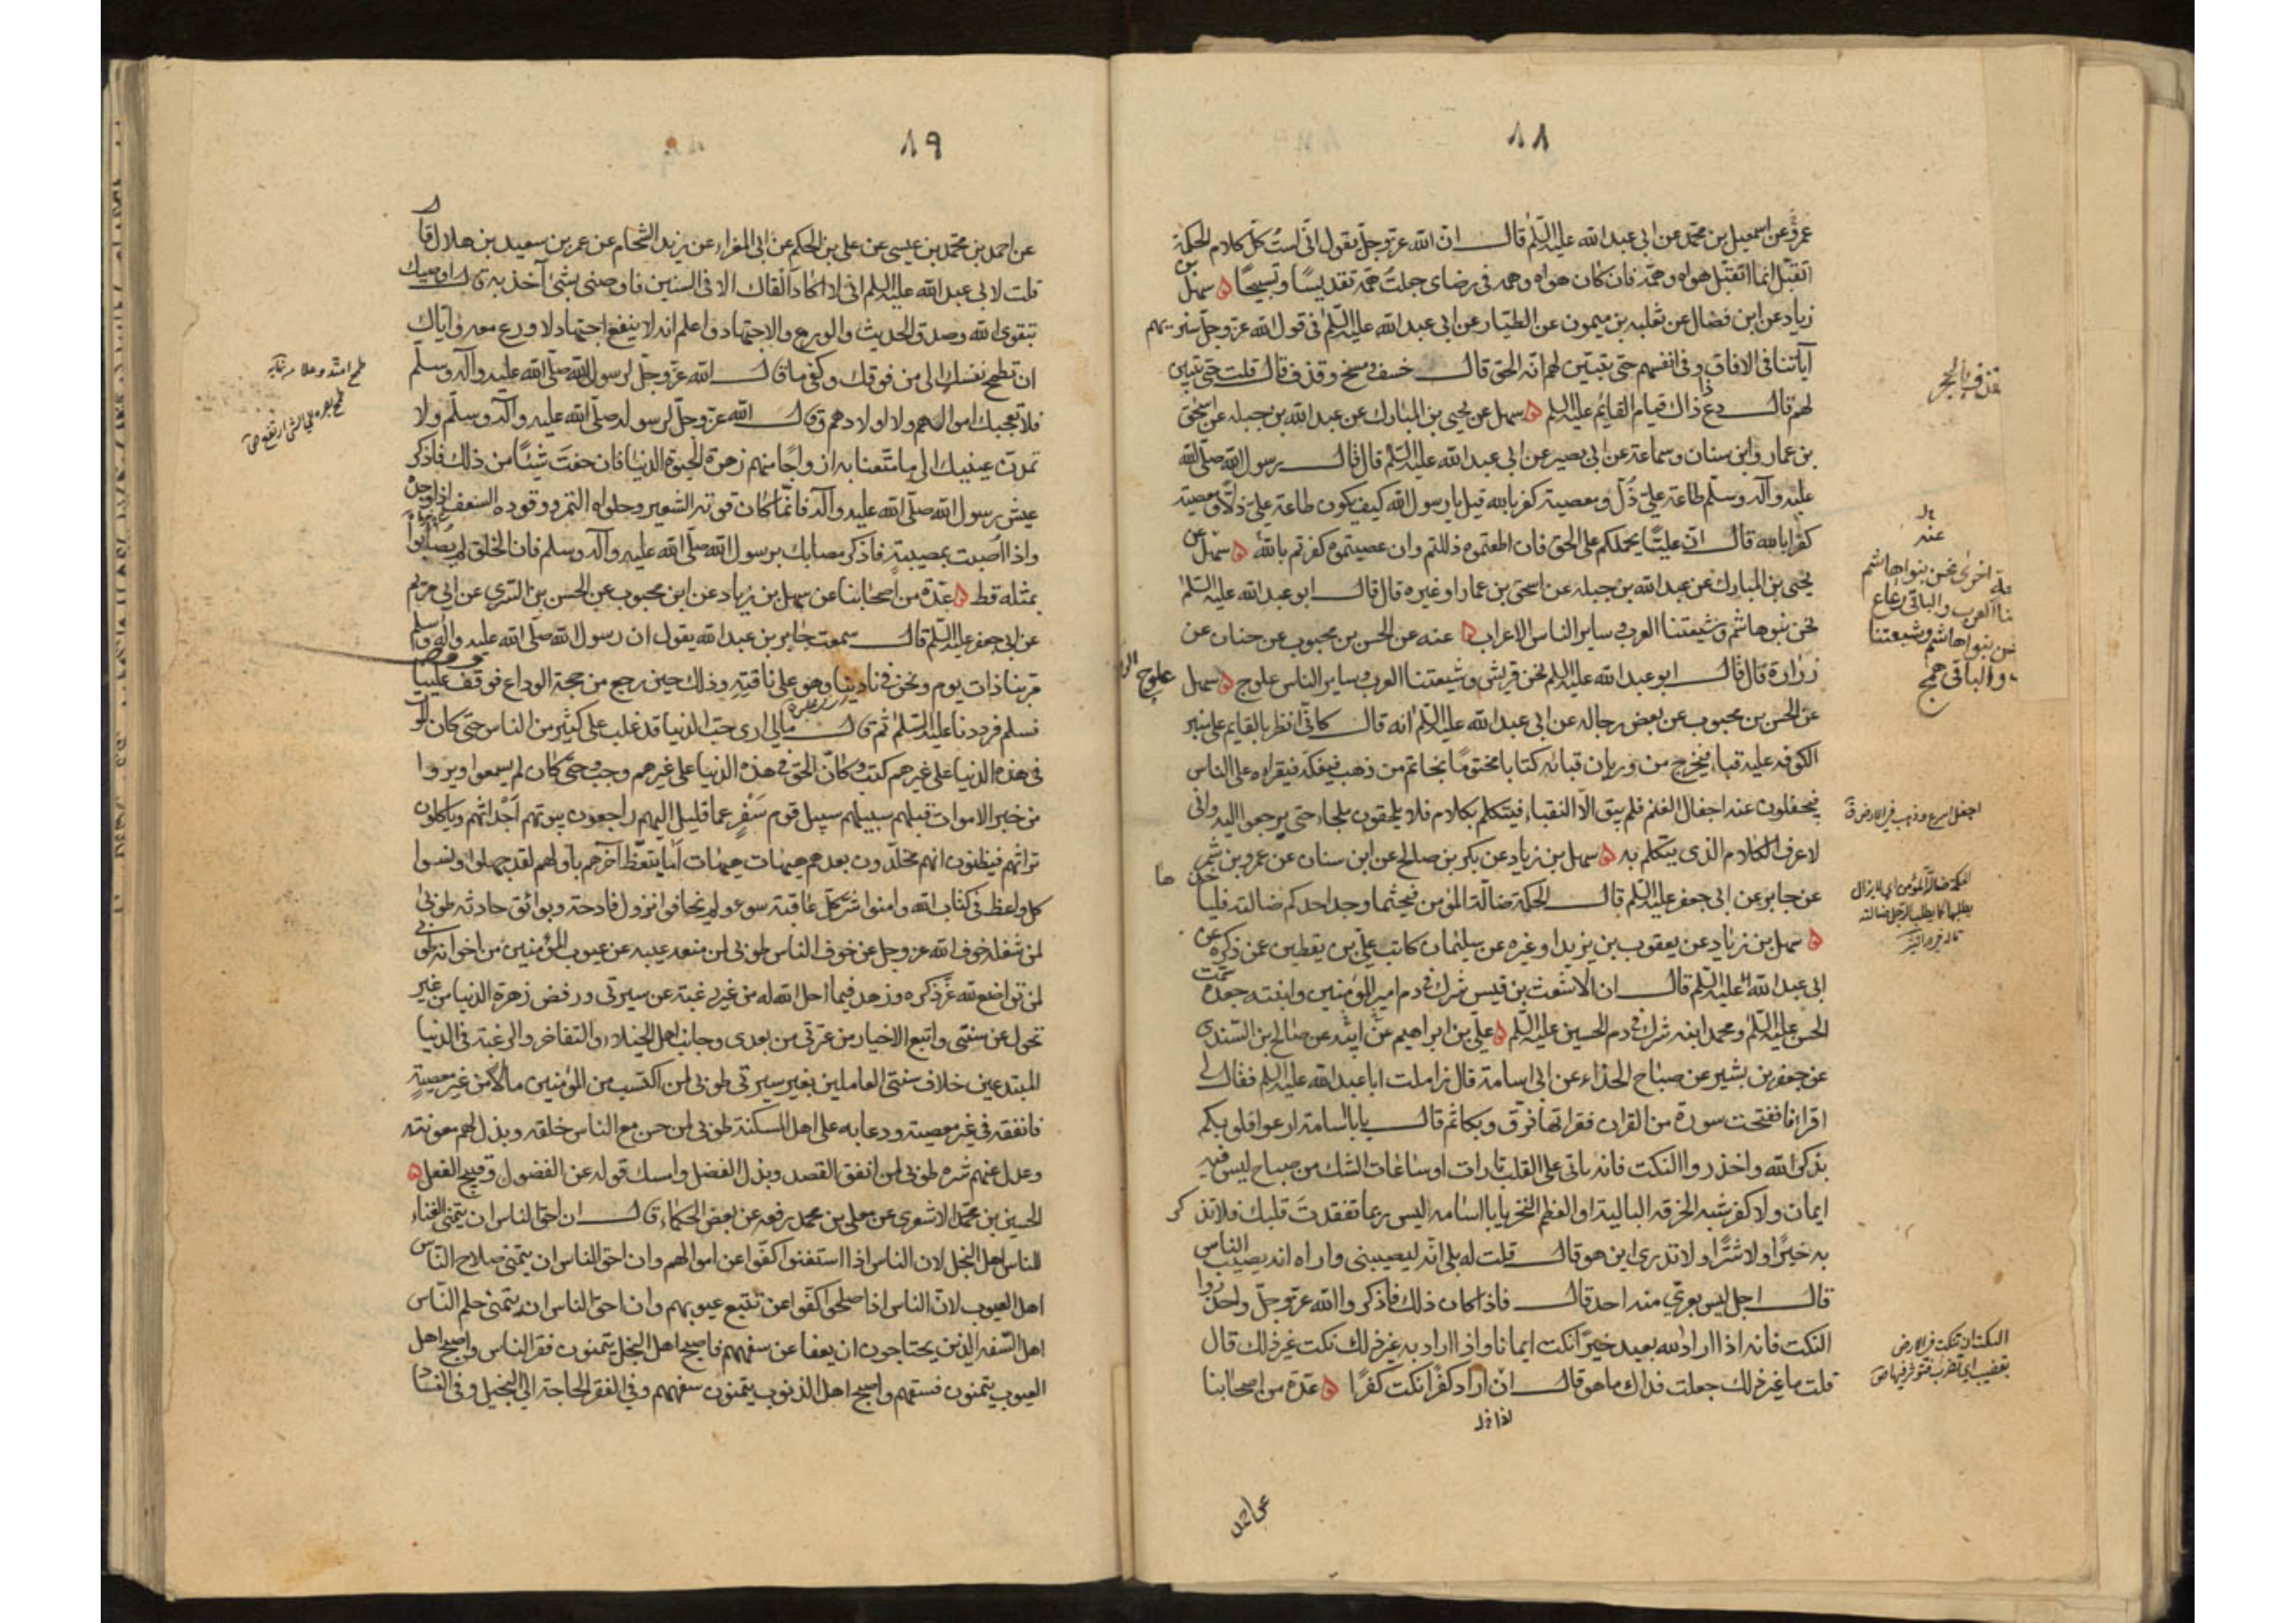 ٨٨
عمرو عن اسمعيل بن محمد عن ابي عبد الله عليه السلم قال ان الله عز وجل يقول اني لست كل كلام الحكمة
اتقبل انما اتقبل هواه وهمه فان كان هواه وهمه في رضاي جعلت همه تقديسا وتسبيحا سهل بن
زياد عن ابن فضال عن ثعلبه بن ميمون عن الطيار عن ابي عبد الله عليه السلم في قول الله عز وجل سنريهم
آياتنا في الافاق وفي انفسهم حتى يتبين لهم انه الحق قال خسف ومسخ وقذف قال قلت حتى يتبين
لهم قال دع ذا ذاك قيام القايم عليه السلم سهل عن يحيى بن المبارك عن عبد الله بن جبله عن اسحق
بن عمار وابن سنان وسماعة عن ابي بصير عن ابي عبد الله عليه السلم قال قال رسول الله صلى الله
عليه وآله وسلم طاعة علي ذل ومعصيته كفر بالله قيل يا رسول الله كيف يكون طاعة علي ذلا ومعصيته
كفرا بالله قال ان عليا يحملكم على الحق فان اطعتموه ذللتم وان عصيتموه كفرتم بالله سهل عن
يحيى بن المبارك عن عبد الله بن جبله عن اسحق بن عمار او غيره قال قال ابو عبد الله عليه السلم
نحن بنو هاشم وشيعتنا العرب وساير الناس الاعراب عنه عن الحسن بن محبوب عن حنان عن
زرارة قال قال ابو عبد الله عليه السلم نحن قريش وشيعتنا العرب وساير الناس علوج سهل
عن الحسن بن محبوب عن بعض رجاله عن ابي عبد الله عليه السلم انه قال كاني انظر بالقايم على منبر
الكوفه عليه قباء فيخرج من وريان قبائه كتابا مختوما بخاتم من ذهب فيفكه فيقراه على الناس
فيجفلون عنه اجفال الغنم فلم يبق الا النقباء فيتكلم بكلام فلا يلحقون ملجاء حتى يرجعوا اليه واني
لاعرف الكلام الذي يتكلم به سهل بن زياد عن بكر بن صالح عن ابن سنان عن عمرو بن شمر
عن جابر عن ابي جعفر عليه السلم قال الحكمة ضالة المؤمن فحيثما وجد احدكم ضالته فليأخذها
سهل بن زياد عن يعقوب بن يزيد او غيره عن سليمان كاتب علي بن يقطين عمن ذكره عن
ابي عبد الله عليه السلم قال ان الاشعث بن قيس شرك في دم امير المؤمنين وابنته جعدة سمت
الحسن عليه السلم ومحمد ابنه شرك في دم الحسين عليه السلم علي بن ابراهيم عن ابيه عن صالح بن السندي
عن جعفر بن بشير عن صباح الحذاء عن ابي اسامة قال زاملت ابا عبد الله عليه السلم فقال لي
اقرا فافتتحت سورة من القران فقراتها فرق وبكا ثم قال يا با اسامة ارعوا قلوبكم
بذكر الله واحذروا النكت فانه ياتي على القلب تارات او ساعات الشك من صباح ليس فيه
ايمان ولا كفر شبه الخرقه البالية او العظم النخر يا با اسامه اليس ربما تفقدت قلبك فلا تذكر
به خيرا ولا شرا ولا تدري اين هو قال قلت له بلى انه ليصيبني واراه انه يصيب الناس
قال اجل ليس يعرى منه احد قال فاذا كان ذلك فاذكروا الله عز وجل واحذروا
النكت فانه اذا اراد الله بعبد خيرا نكت ايمانا واذا اراد به غير ذلك نكت غير ذلك قال
قلت ما غير ذلك جعلت فداك ما هو قال ان اراد كفرا نكت كفرا عدة من اصحابنا
عن احمد
علوج
عنه
اخرى نحن بنو هاشم
العرب والباقي رعاع
نحن بنو هاشم وشيعتنا
والباقي همج
٨٩
عن احمد بن محمد بن عيسى عن علي بن الحكم عن ابي المغراء عن زيد الشحام عن عمر بن سعيد بن هلال قال
قلت لابي عبد الله عليه السلم اني لا اكاد القاك الا في السنين فاوصني بشئ آخذ به قال اوصيك
بتقوى الله وصدق الحديث والورع والاجتهاد واعلم انه لا ينفع اجتهاد لا ورع معه واياك
ان تطمح نفسك الى من فوقك وكفى ما قال الله عز وجل لرسول الله صلى الله عليه وآله وسلم
فلا تعجبك اموالهم ولا اولادهم وقال الله عز وجل لرسوله صلى الله عليه وآله وسلم ولا
تمدن عينيك الى ما متعنا به ازواجا منهم زهرة الحيوة الدنيا فان خفت شيئا من ذلك فاذكر
عيش رسول الله صلى الله عليه وآله فانما كان قوته الشعير وحلواه التمر ووقوده السعف اذا وجده
واذا اصبت بمصيبة فاذكر مصابك برسول الله صلى الله عليه وآله وسلم فان الخلق لم يصابوا
بمثله قط عدة من اصحابنا عن سهل بن زياد عن ابن محبوب عن الحسن بن السري عن ابي مريم
عن ابي جعفر عليه السلم قال سمعت جابر بن عبد الله يقول ان رسول الله صلى الله عليه وآله وسلم
مر بنا ذات يوم ونحن في نادينا وهو على ناقته وذلك حين رجع من حجة الوداع فوقف علينا
فسلم فرددنا عليه السلم ثم قال مالي ارى حب الدنيا قد غلب على كثير من الناس حتى كان الموت
في هذه الدنيا على غيرهم كتب وكان الحق في هذه الدنيا على غيرهم وجب وحتى كان لم يسمعوا ويروا
من خبر الاموات قبلهم سبيلهم سبيل قوم سفر عما قليل اليهم راجعون بيوتهم اجداثهم وياكلون
تراثهم فيظنون انهم مخلدون بعدهم هيهات هيهات اما يتعظ آخرهم باولهم لقد جهلوا ونسوا
كل واعظ في كتاب الله وامنوا شر كل عاقبة سوء ولم يخافوا نزول فادحة وبوائق حادثه طوبى
لمن شغله خوف الله عز وجل عن خوف الناس طوبى لمن منعه عيبه عن عيوب المؤمنين من اخوانه طوبى
لمن تواضع لله عز ذكره وزهد فيما احل الله له من غير رغبة عن سيرتي ورفض زهرة الدنيا من غير
تحول عن سنتي واتبع الاخيار من عترتي من بعدي وجانب اهل الخيلاء والتفاخر والرغبة في الدنيا
المبتدعين خلاف سنتي العاملين بغير سيرتي طوبى لمن اكتسب من المؤمنين مالا من غير معصية
فانفقه في غير معصية وعاد به على اهل المسكنة طوبى لمن حسن مع الناس خلقه وبذل لهم معونته
وعدل عنهم شره طوبى لمن انفق القصد وبذل الفضل وامسك قوله عن الفضول وقبيح الفعل
الحسين بن محمد الاشعري عن معلى بن محمد رفعه عن بعض الحكماء قال ان احق الناس ان يتمنى الغناء
للناس اهل البخل لان الناس اذا استغنوا كفوا عن اموالهم وان احق الناس ان يتمنى صلاح الناس
اهل العيوب لان الناس اذا صلحوا كفوا عن تتبع عيوبهم وان احق الناس ان يتمنى حلم الناس
اهل السفه الذين يحتاجون ان يعفا عن سفههم فاصبح اهل البخل يتمنون فقر الناس واصبح اهل
العيوب يتمنون فسقهم واصبح اهل الذنوب يتمنون سفههم وفي الفقر الحاجة الى البخيل وفي الفساد